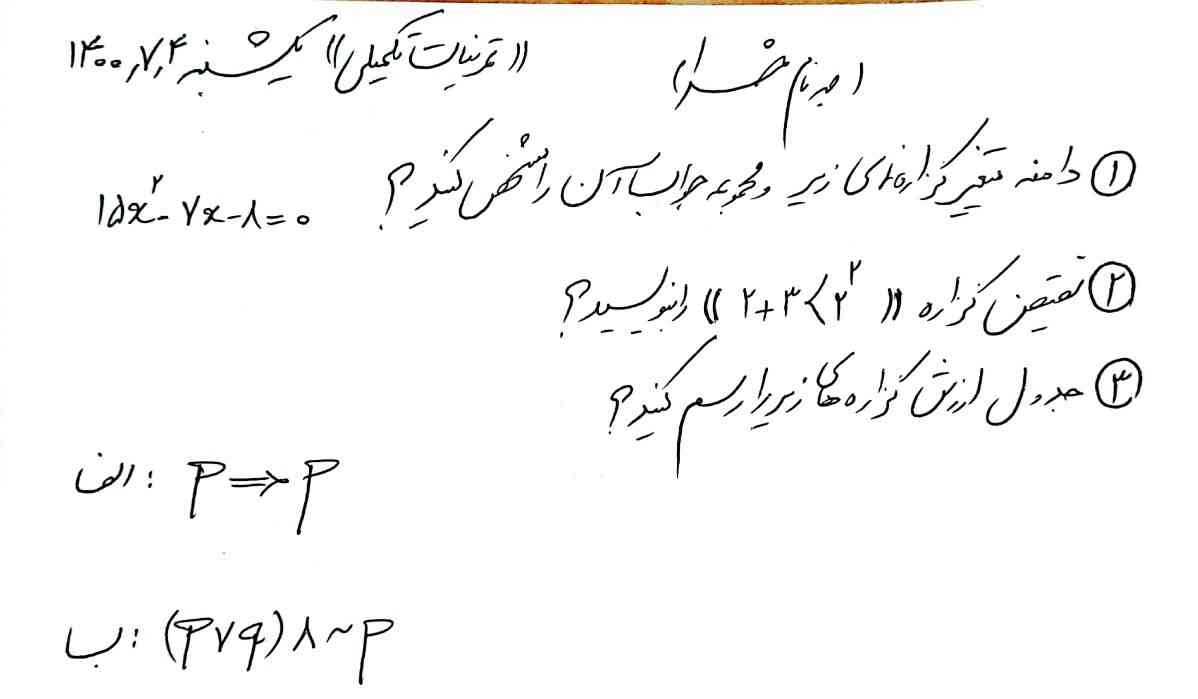 (به نام خدا) «تمرینات تکمیلی» یکشنبه ۱۴۰۰,۷,۴
① دامنه متغیر گزاره‌نمای زیر و مجموعه جواب آن را مشخص کنید؟ ۱۵x² - ۷x - ۸ = ۰
② نقیض گزاره «۲ + ۳ > ۲²» را بنویسید؟
③ جدول ارزش گزاره های زیر را رسم کنید؟
الف: P ⇒ P
ب: (P ∨ q) ∧ ~ P